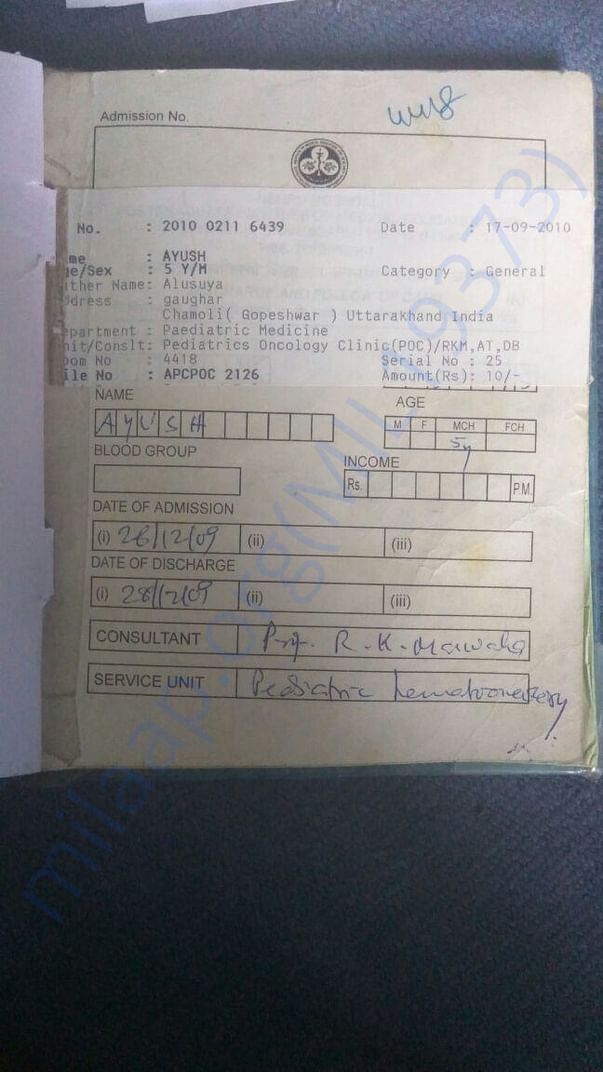 Admission No.
No. : 2010 0211 6439 Date : 17-09-2010
me : AYUSH
ge/Sex : 5 Y/M Category : General
ther Name: Alusuya
ddress : gaughar
Chamoli( Gopeshwar ) Uttarakhand India
epartment : Paediatric Medicine
nit/Conslt: Pediatrics Oncology Clinic(POC)/RKM,AT,DB
oom No : 4418 Serial No : 25
ile No : APCPOC 2126 Amount(Rs): 10/-
NAME AGE
AYUSH M F MCH FCH
5y
BLOOD GROUP INCOME
Rs. P.M.
DATE OF ADMISSION
(i) 26/12/09 (ii) (iii)
DATE OF DISCHARGE
(i) 28/12/09 (ii) (iii)
CONSULTANT Prof. R. K. Marwaha
SERVICE UNIT Pediatric hematooncology
milaap.org(MIL49373)